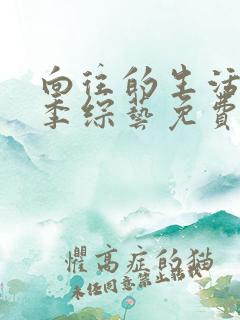 向往的生活
季综艺免费
惧高症的猫
未经同意禁止转载